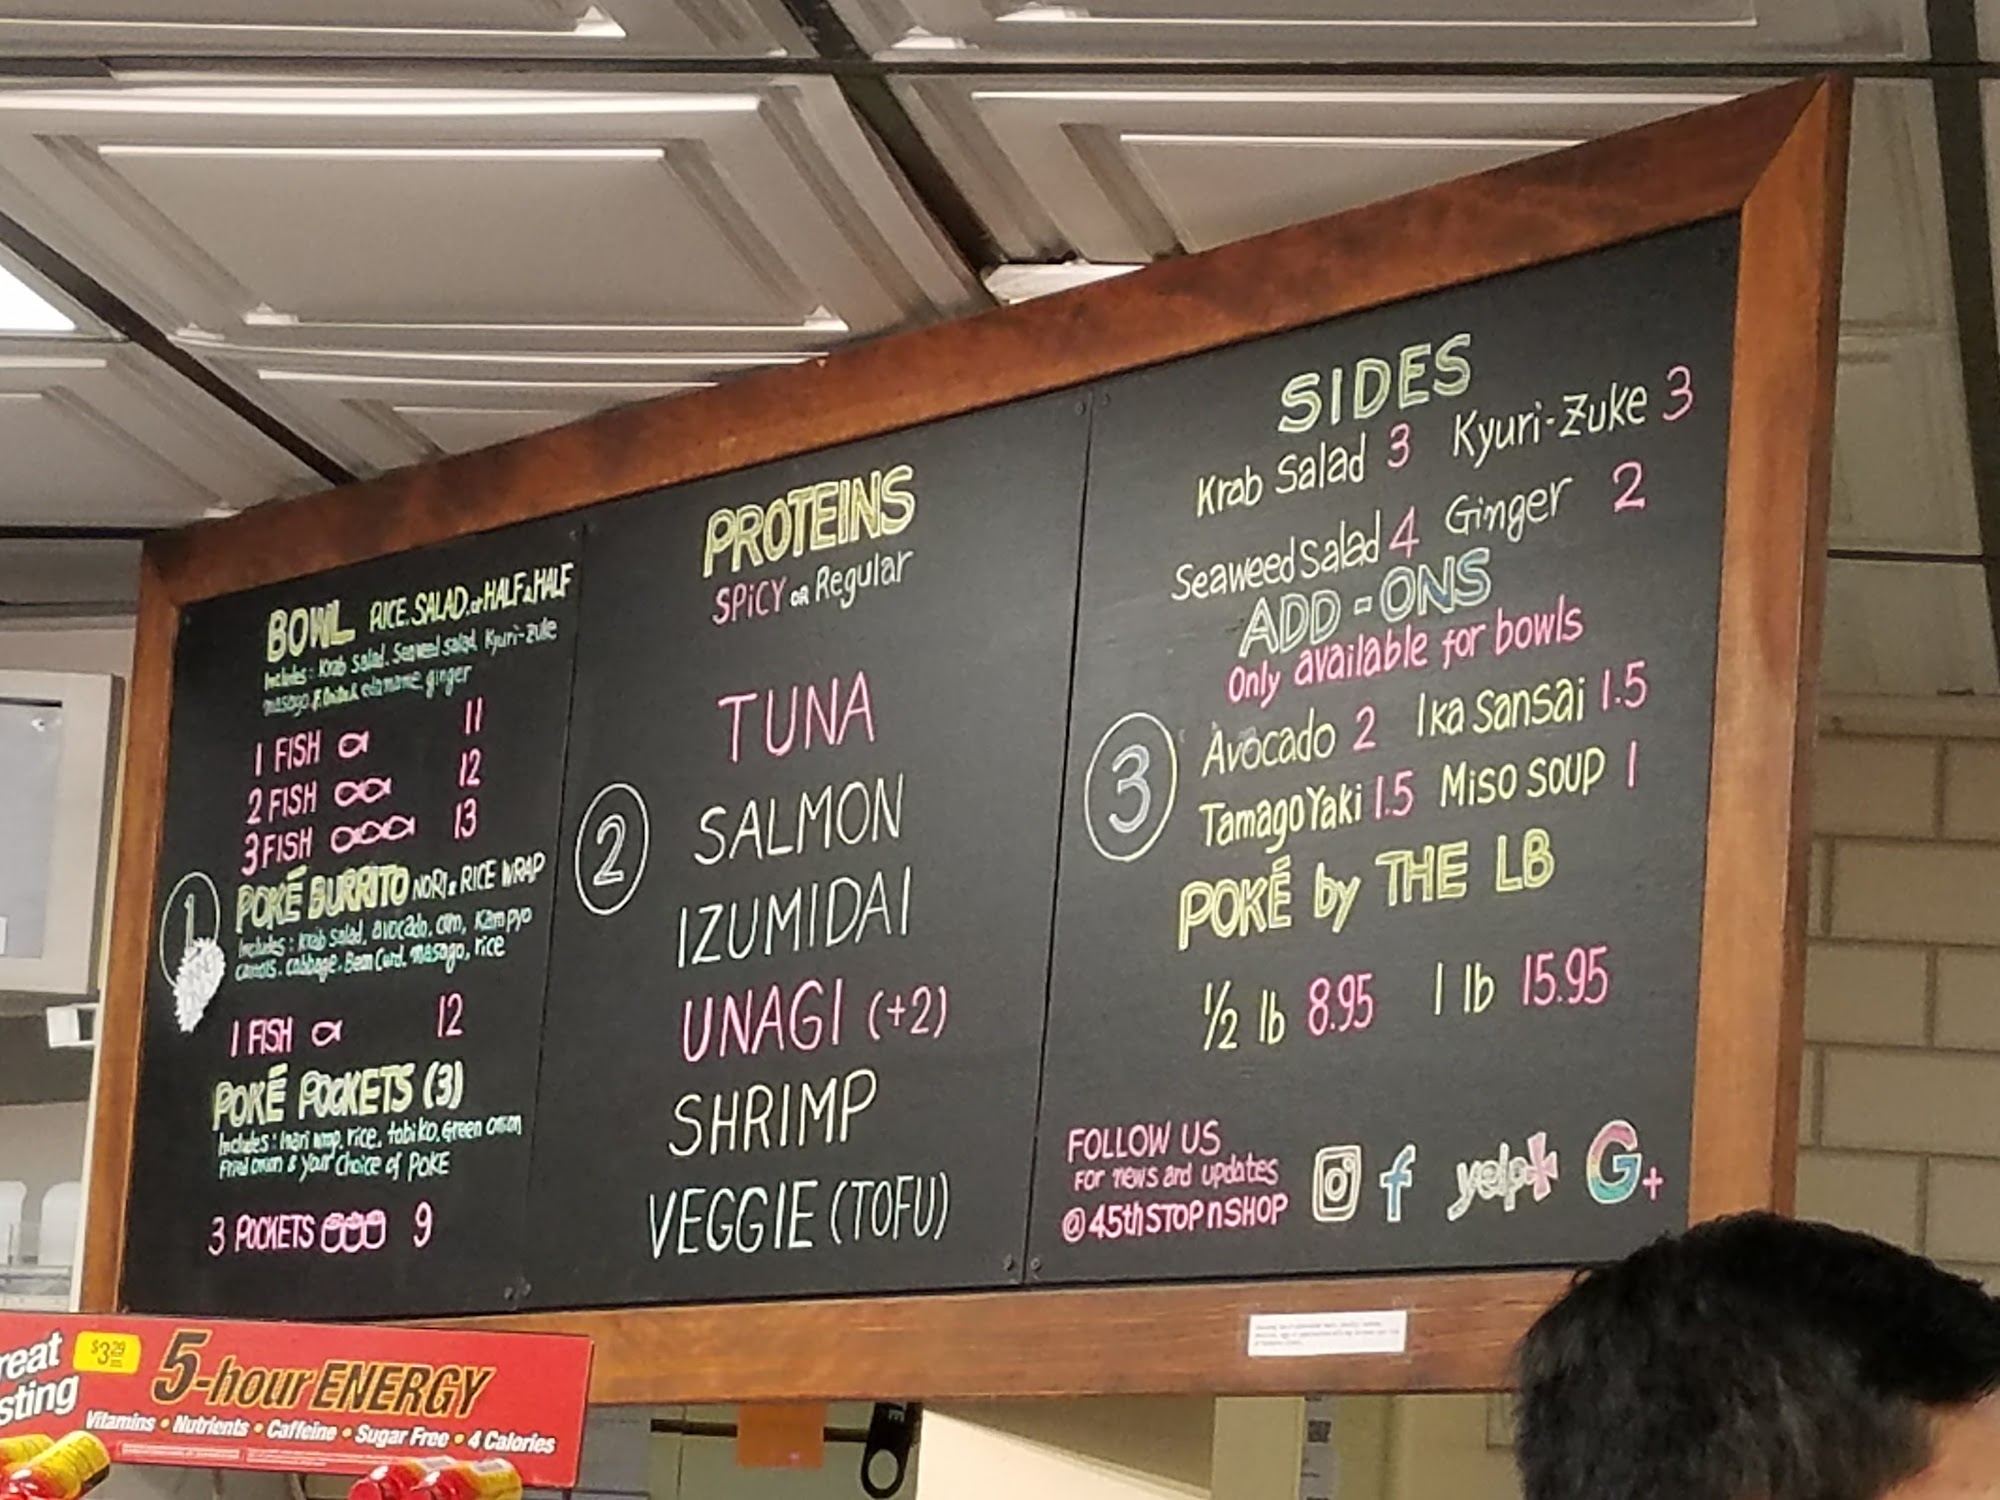 BOWL RICE, SALAD, or HALF & HALF
Includes: Krab Salad, Seaweed salad, Kyuri-Zuke
masago, F. Onion & edamame, ginger
1 FISH 11
2 FISH 12
3 FISH 13
1
POKÉ BURRITO NORI & RICE WRAP
Includes: Krab Salad, avocado, cum, Kampyo
carrots, cabbage, Bean Curd, masago, rice
1 FISH 12
POKÉ POCKETS (3)
Includes: Inari wrap, rice, tobiko, Green onion
Fried onion & your choice of POKE
3 POCKETS 9
PROTEINS
SPiCY OR Regular
2
TUNA
SALMON
IZUMIDAI
UNAGI (+2)
SHRIMP
VEGGIE (TOFU)
SIDES
Krab Salad 3 Kyuri-Zuke 3
Seaweed Salad 4 Ginger 2
ADD-ONS
Only available for bowls
3
Avocado 2 Ika Sansai 1.5
Tamago Yaki 1.5 Miso Soup 1
POKÉ by THE LB
1/2 lb 8.95 1 lb 15.95
FOLLOW US
For news and updates
@45thSTOPnSHOP
f yelp G+
$3.29
5-hour ENERGY
Vitamins • Nutrients • Caffeine • Sugar Free • 4 Calories